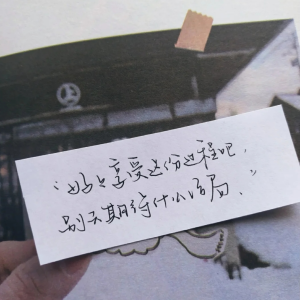 “好好享受这份过程吧,
别太期待什么结局.”